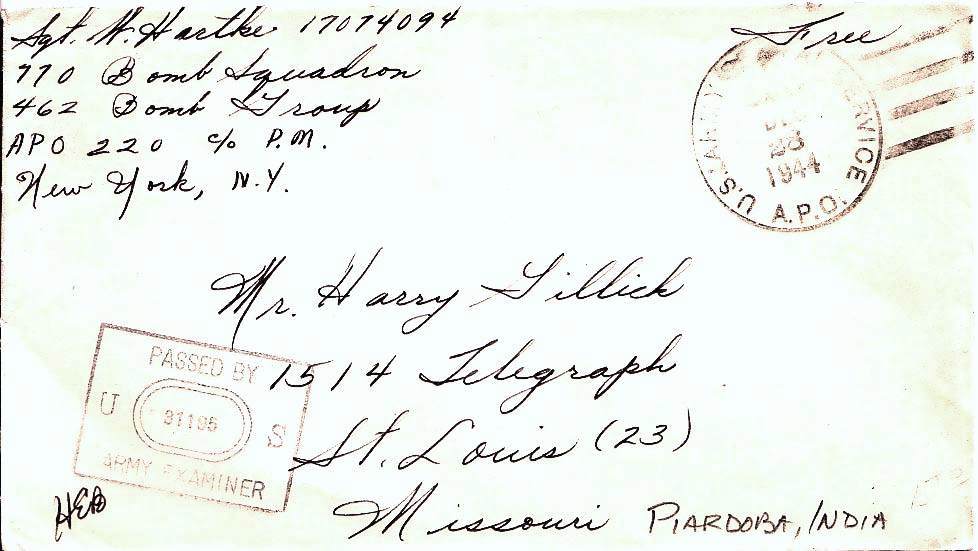 Sgt. W. Hartke 17074094
770 Bomb Squadron
462 Bomb Group
APO 220 c/o P.M.
New York, N.Y.
Free
U.S. ARMY SERVICE
28
1944
A.P.O.
Mr. Harry Gillick
1514 Telegraph
St. Louis (23)
Missouri
PIARDOBA, INDIA
PASSED BY
U 31195 S
ARMY EXAMINER
HEB